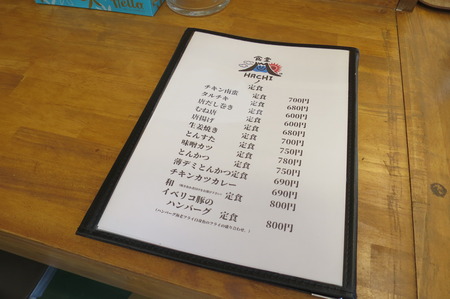 hello
食堂
HACHI
チキン南蛮 定食 700円
タルチキ 定食 680円
唐だし巻き 定食 600円
むね唐 定食 600円
唐揚げ 定食 680円
生姜焼き 定食 700円
とんすた 定食 750円
味噌カツ 定食 780円
とんかつ 定食 750円
薄デミとんかつ定食 690円
チキンカツカレー 690円
和 定食 800円
イベリコ豚の
ハンバーグ 定食 800円